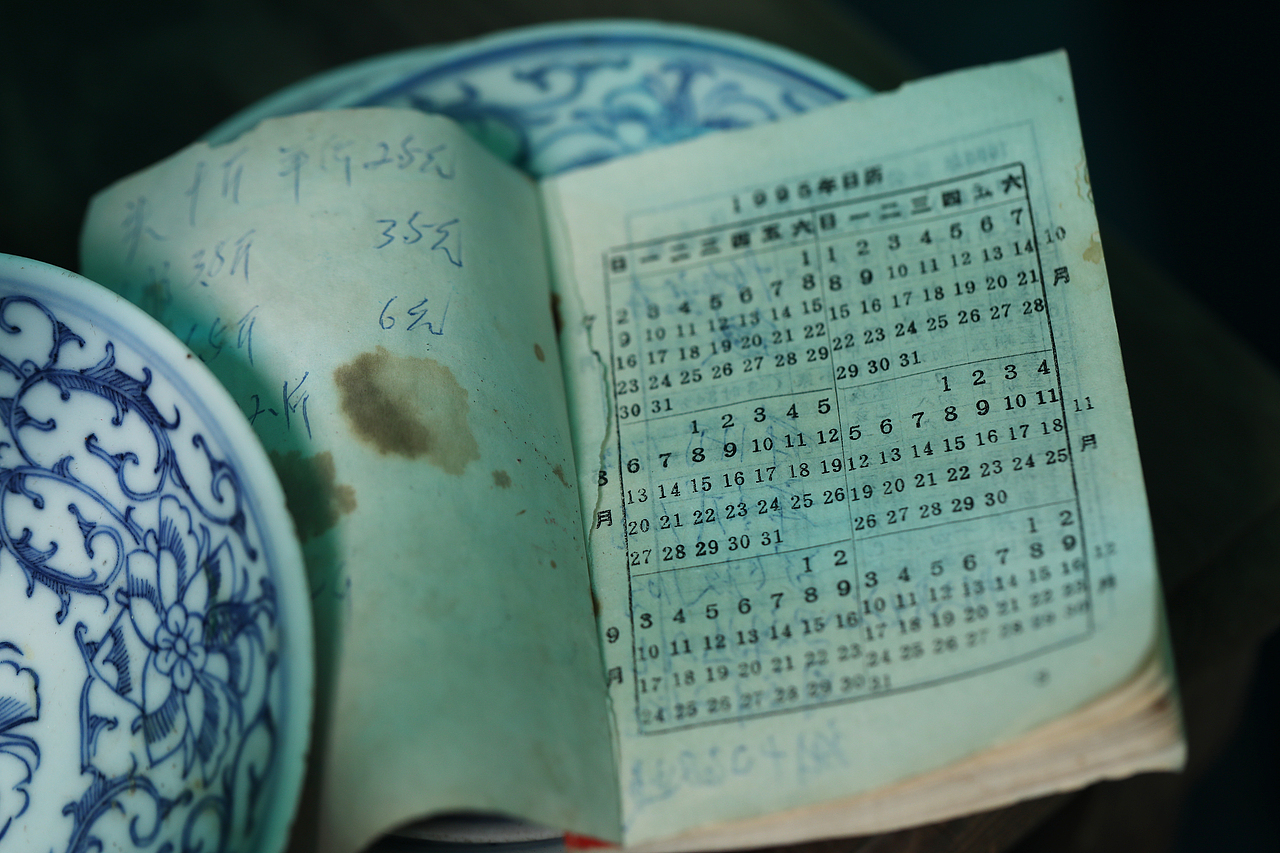 25元
35元
3.8斤
6元
1.5斤
2斤
1995年日历
日 一 二 三 四 五 六 日 一 二 三 四 五 六
1 1 2 3 4 5 6 7
2 3 4 5 6 7 8 8 9 10 11 12 13 14
9 10 11 12 13 14 15 15 16 17 18 19 20 21
16 17 18 19 20 21 22 22 23 24 25 26 27 28
23 24 25 26 27 28 29 29 30 31
30 31
10月
7
1 2 3 4 5 1 2 3 4
6 7 8 9 10 11 12 5 6 7 8 9 10 11
13 14 15 16 17 18 19 12 13 14 15 16 17 18
20 21 22 23 24 25 26 19 20 21 22 23 24 25
27 28 29 30 31 26 27 28 29 30
8月
11月
1 2 1 2
3 4 5 6 7 8 9 3 4 5 6 7 8 9
10 11 12 13 14 15 16 10 11 12 13 14 15 16
17 18 19 20 21 22 23 17 18 19 20 21 22 23
24 25 26 27 28 29 30 24 25 26 27 28 29 30
31
9月
12月